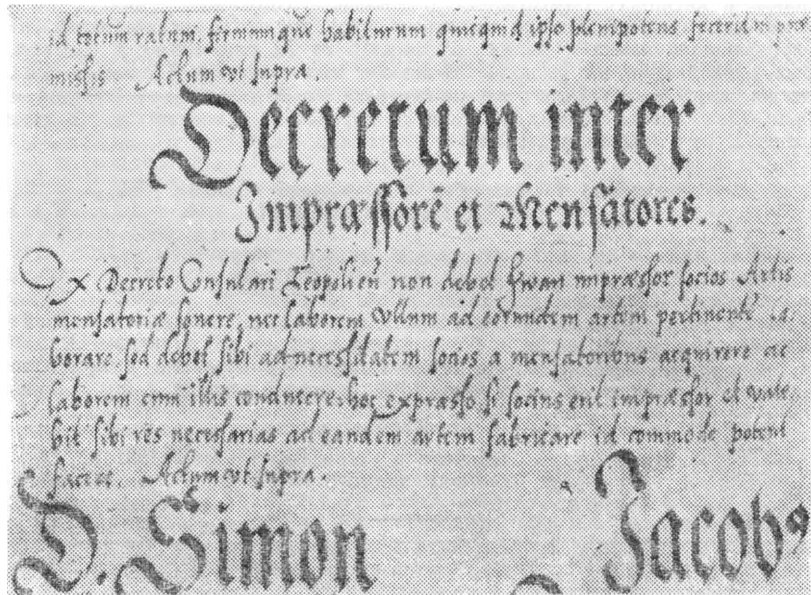 id totum ratum, firmumque habiturum quicquid ipse plenipotens fecerit in præ
missis Actum vt supra.
Decretum inter
Impræssorē et Mensātores.
Ex Decreto Consulari Leopolień non debet Iwan impræssor socios Artis
mensatoriæ fouere, nec laborem vllum ad eorundem artem pertinentē la
borare, sed debet sibi ad necessitatem socios a mensatoribus acquirere ac
laborem cum illis conducere, hoc expræsso si socius erit impræssor et vale
bit sibi res necessarias ad eandem artem fabricare id commode poterit
facere. Actum vt supra.
D. Simon Jacobꝰ